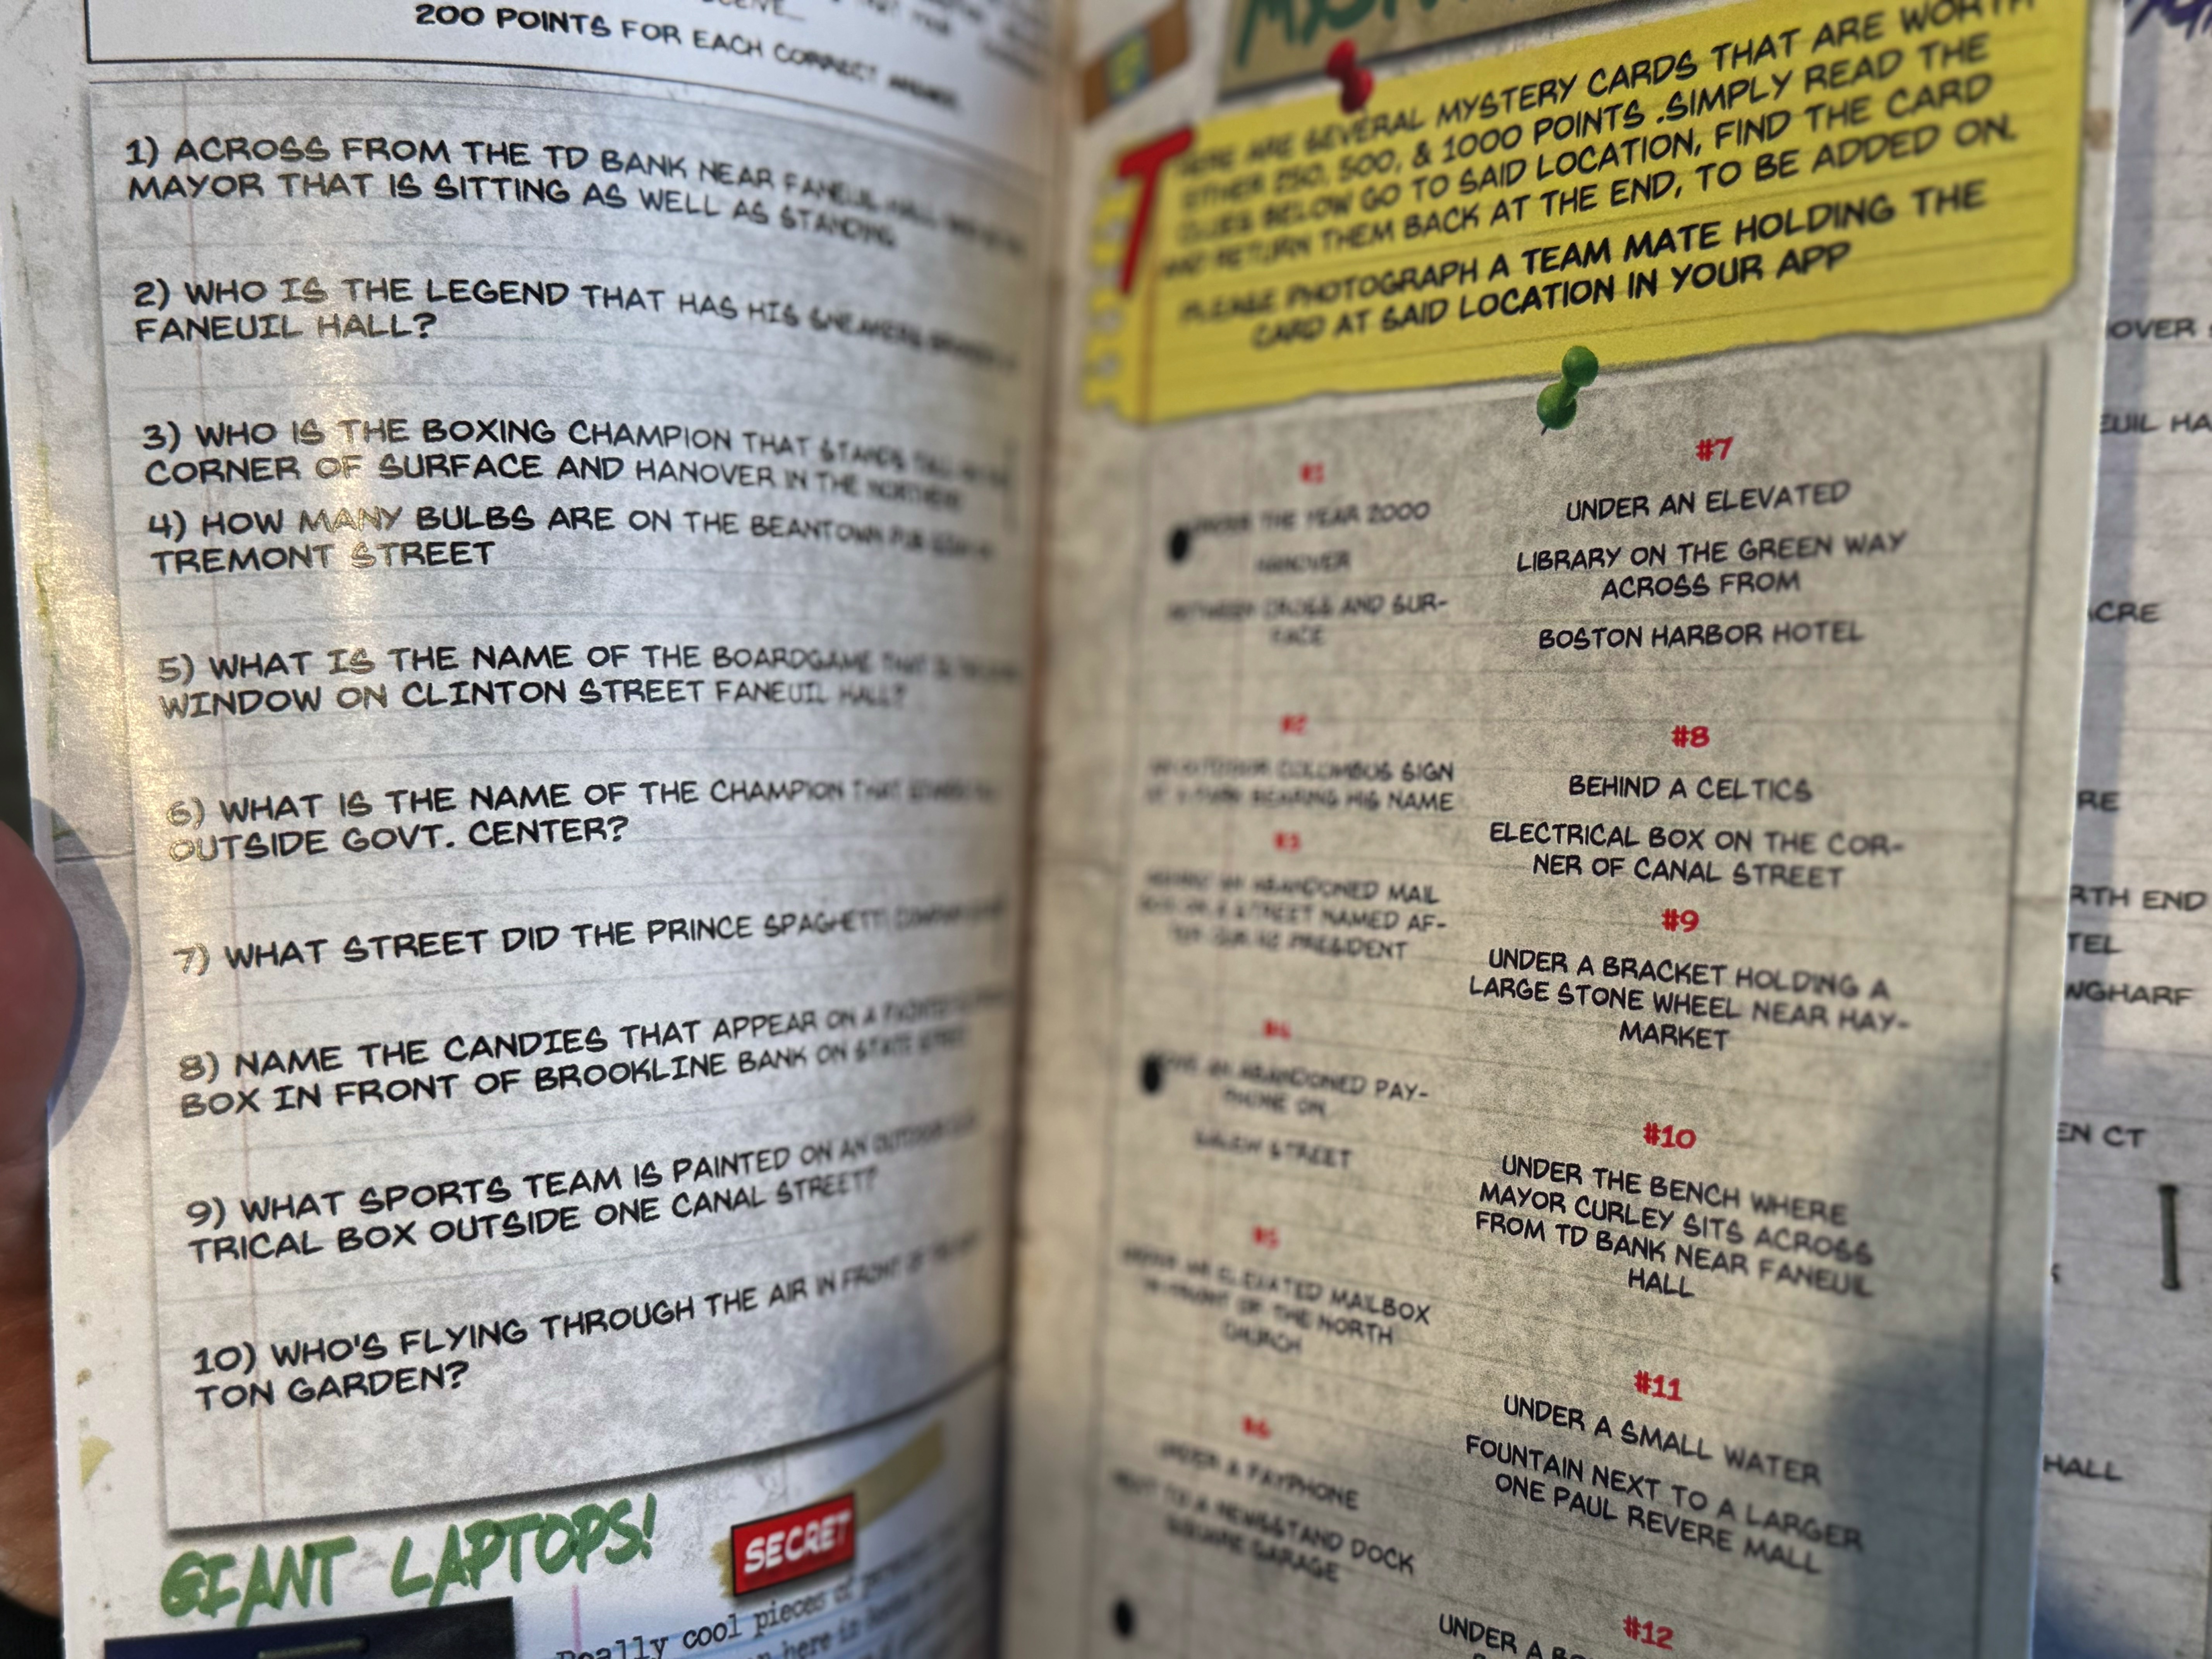 200 POINTS FOR EACH CORRECT ANSWER
1) ACROSS FROM THE TD BANK NEAR FANEUIL HALL
MAYOR THAT IS SITTING AS WELL AS STANDING
2) WHO IS THE LEGEND THAT HAS HIS SNEAKERS
FANEUIL HALL?
3) WHO IS THE BOXING CHAMPION THAT STANDS
CORNER OF SURFACE AND HANOVER IN THE
4) HOW MANY BULBS ARE ON THE BEANTOWN PUB
TREMONT STREET
5) WHAT IS THE NAME OF THE BOARDGAME THAT IS
WINDOW ON CLINTON STREET FANEUIL HALL?
6) WHAT IS THE NAME OF THE CHAMPION THAT
OUTSIDE GOVT. CENTER?
7) WHAT STREET DID THE PRINCE SPAGHETTI COMPANY
8) NAME THE CANDIES THAT APPEAR ON A
BOX IN FRONT OF BROOKLINE BANK ON STATE STREET
9) WHAT SPORTS TEAM IS PAINTED ON AN OUTDOOR
TRICAL BOX OUTSIDE ONE CANAL STREET?
10) WHO'S FLYING THROUGH THE AIR IN FRONT OF
TON GARDEN?
GIANT LAPTOPS!
SECRET
Really cool pieces of
here is
THERE ARE SEVERAL MYSTERY CARDS THAT ARE WORTH
EITHER 250, 500, & 1000 POINTS .SIMPLY READ THE
CLUES BELOW GO TO SAID LOCATION, FIND THE CARD
AND RETURN THEM BACK AT THE END, TO BE ADDED ON.
PLEASE PHOTOGRAPH A TEAM MATE HOLDING THE
CARD AT SAID LOCATION IN YOUR APP
#1
UNDER THE YEAR 2000
HANOVER
BETWEEN CROSS AND SUR-
FACE
#2
COLUMBUS SIGN
BEARING HIS NAME
#3
AN ABANDONED MAIL
BOX ON A STREET NAMED AF-
TER OUR PRESIDENT
#4
AN ABANDONED PAY-
PHONE ON
SALEM STREET
#5
UNDER AN ELEVATED MAILBOX
IN FRONT OF THE NORTH
CHURCH
#6
UNDER A PAYPHONE
NEXT TO A NEWSSTAND DOCK
SQUARE GARAGE
#7
UNDER AN ELEVATED
LIBRARY ON THE GREEN WAY
ACROSS FROM
BOSTON HARBOR HOTEL
#8
BEHIND A CELTICS
ELECTRICAL BOX ON THE COR-
NER OF CANAL STREET
#9
UNDER A BRACKET HOLDING A
LARGE STONE WHEEL NEAR HAY-
MARKET
#10
UNDER THE BENCH WHERE
MAYOR CURLEY SITS ACROSS
FROM TD BANK NEAR FANEUIL
HALL
#11
UNDER A SMALL WATER
FOUNTAIN NEXT TO A LARGER
ONE PAUL REVERE MALL
#12
UNDER A
OVER
EUIL HA
ACRE
RE
RTH END
TEL
NGHARF
EN CT
HALL